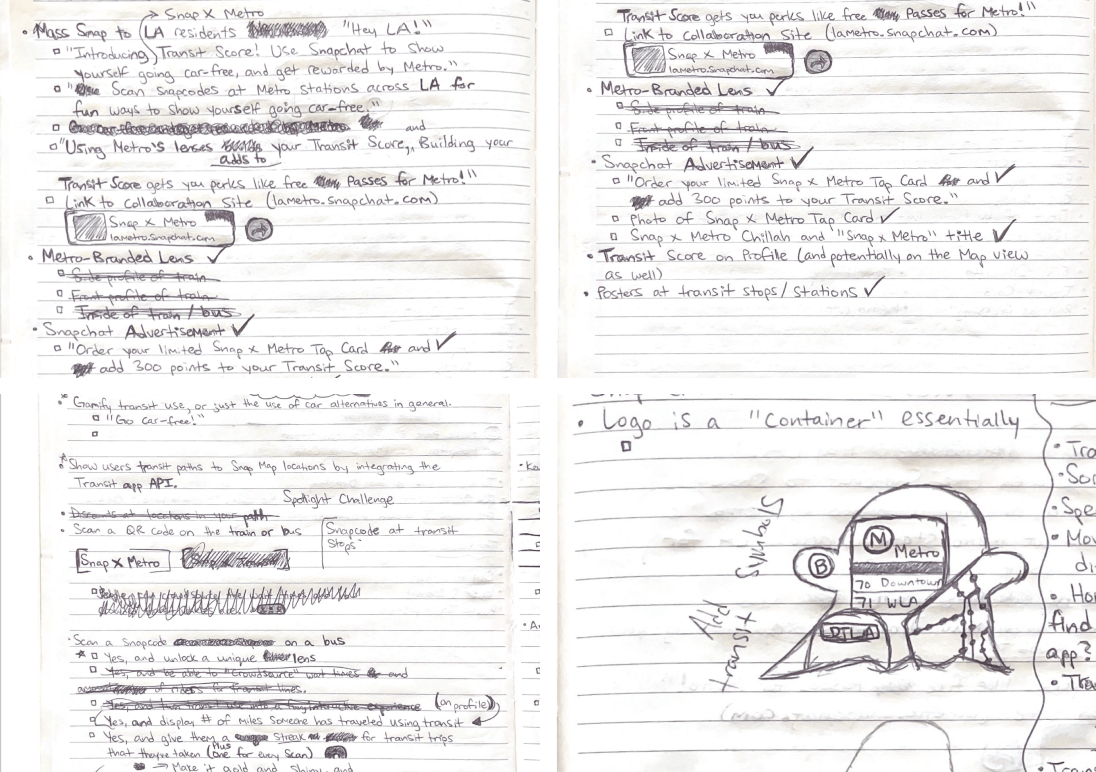 → Snap X Metro
• Mass Snap to LA residents "Hey LA!"
"Introducing Transit Score! Use Snapchat to Show
yourself going car-free, and get rewarded by Metro."
" Scan snapcodes at Metro stations across LA for
fun ways to show yourself going car-free."
and
"Using Metro's lenses adds to your Transit Score, Building your
Transit Score gets you perks like free Passes for Metro!"
Link to Collaboration Site (lametro.snapchat.com)
Snap x Metro
lametro.snapchat.com
• Metro-Branded Lens ✓
Side profile of train
Front profile of train
Inside of train / bus
• Snapchat Advertisement ✓
"Order your limited Snap x Metro Tap Card and ✓
add 300 points to your Transit Score."
Transit Score gets you perks like free Passes for Metro!"
Link to Collaboration Site (lametro.snapchat.com)
Snap x Metro
lametro.snapchat.com
• Metro-Branded Lens ✓
Side profile of train
Front profile of train
Inside of train / bus
• Snapchat Advertisement ✓
"Order your limited Snap x Metro Tap Card and ✓
add 300 points to your Transit Score."
Photo of Snap x Metro Tap Card ✓
Snap x Metro Chillah and "Snap x Metro" title ✓
• Transit Score on Profile (and potentially on the Map view
as well)
• Posters at transit stops/stations ✓
Gamify transit use, or just the use of car alternatives in general.
"Go car-free!"
Show users transit paths to Snap Map locations by integrating the
Transit app API.
Spotlight Challenge
• Discounts at locations in your path
• Scan a QR code on the train or bus
Snapcode at transit
Stops
Snap X Metro
• Scan a Snapcode on a bus
* Yes, and unlock a unique lens
Yes, and be able to "Crowdsource" wait times and
of riders for transit lines.
Yes, and turn transit use into a fully interactive experience
(on profile)
Yes, and display # of miles Someone has traveled using transit
Yes, and give them a streak for transit trips
that they've taken (Plus one for every Scan)
→ Make it gold and shiny, and
• Logo is a "Container" essentially
Add
transit
Symbols
M
Metro
B
70 Downtown
71 WLA
DTLA
• Tra
• Soc
• Spe
• Mov
di
• Ho
find
app?
• Tra